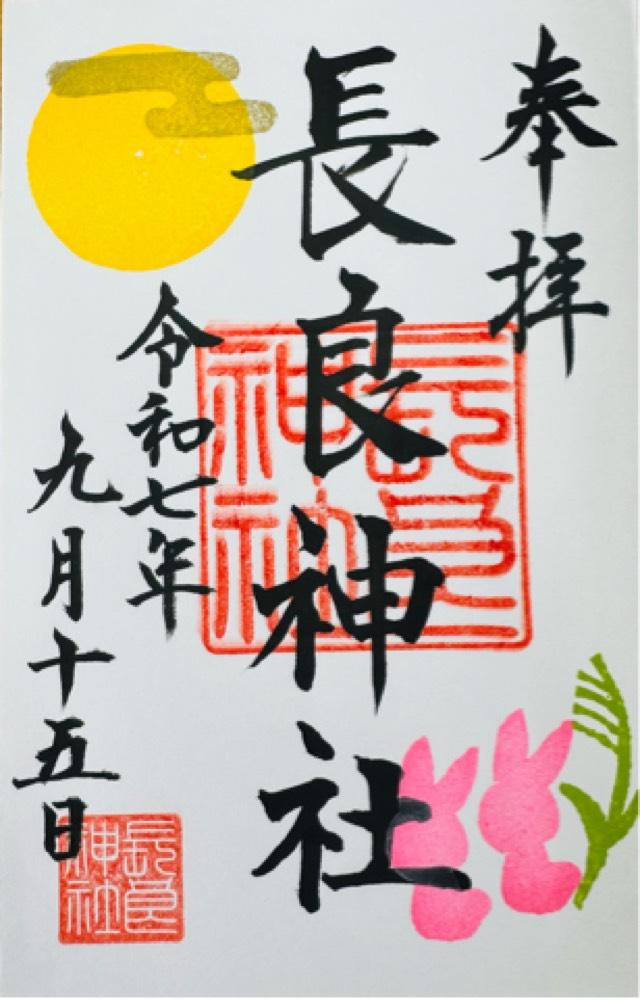 奉拝
長良神社
令和七年
九月十五日
長良神社
長良神社